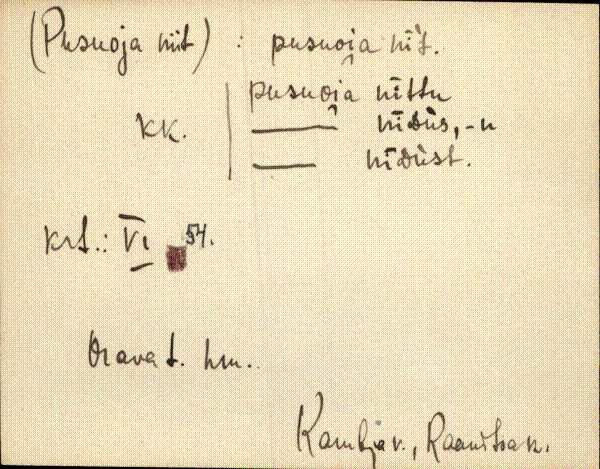 (Pusuoja niit) : pusuoi̯a nīt̀.
kk. pusuoi̯a nīttu
— nīdüs, -n
— nīdüst.
krt.: VI 54.
Orava t. hm.
Kambja v., Raanitsa k.